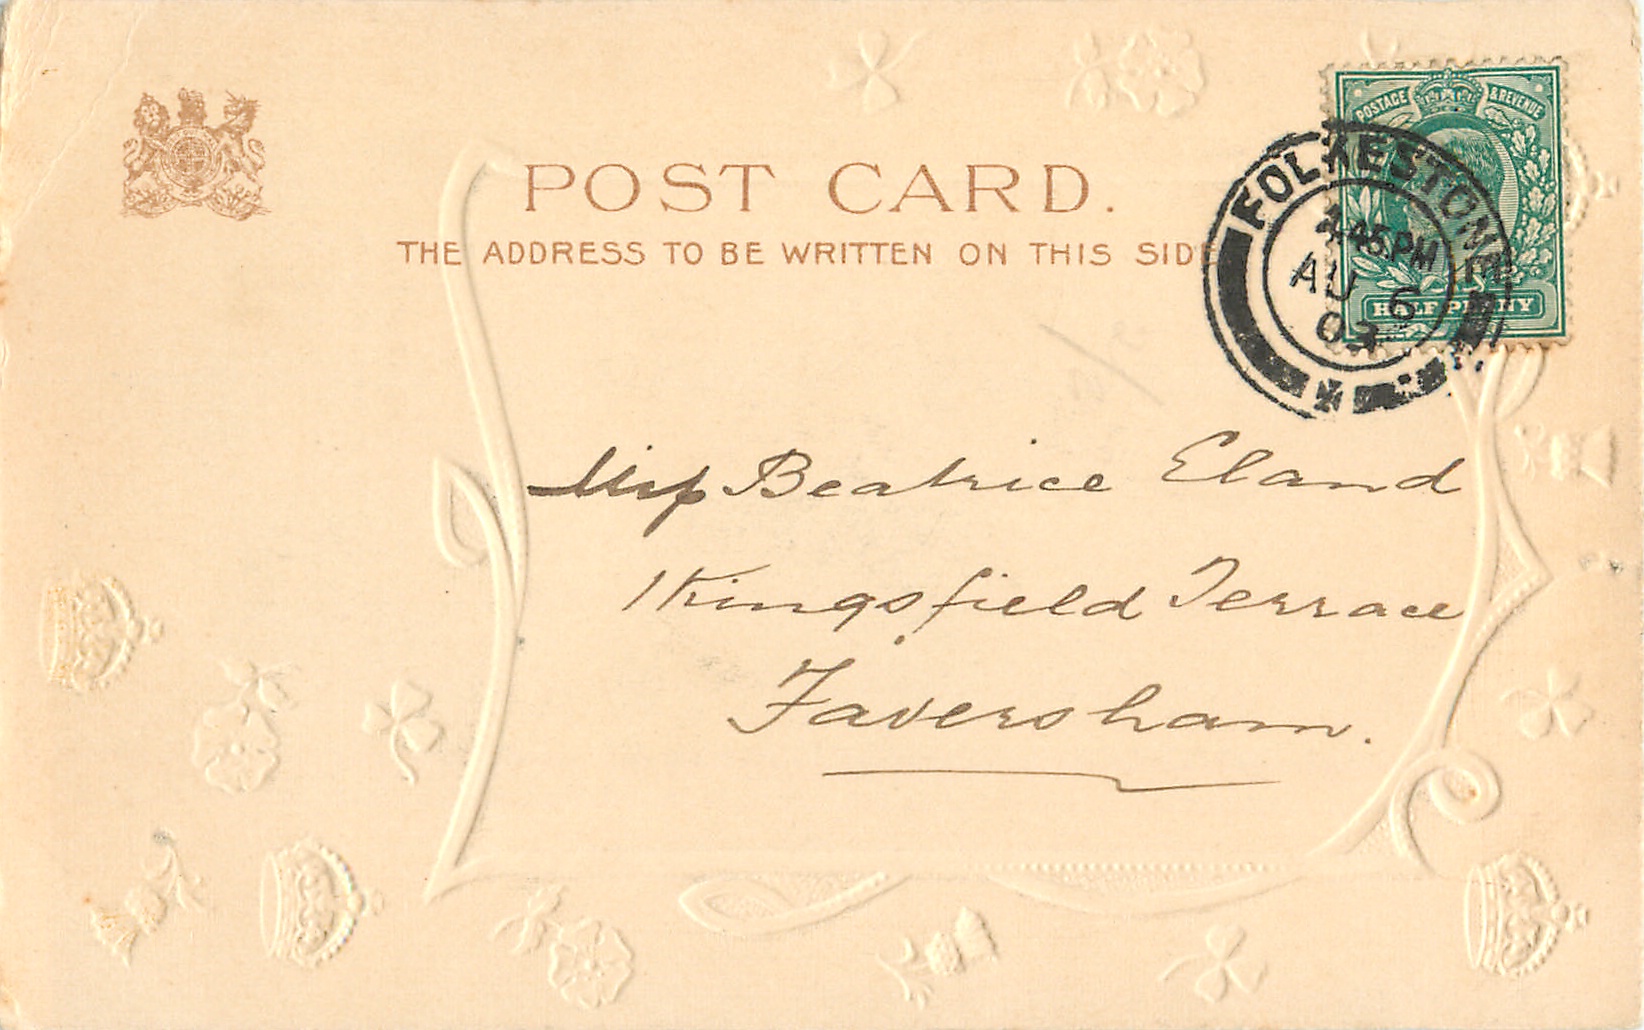 POST CARD.
THE ADDRESS TO BE WRITTEN ON THIS SIDE
POSTAGE & REVENUE
HALFPENNY
FOLKESTONE
45 PM
AU 6
03
Miss Beatrice Eland
1 Kingsfield Terrace
Faversham.